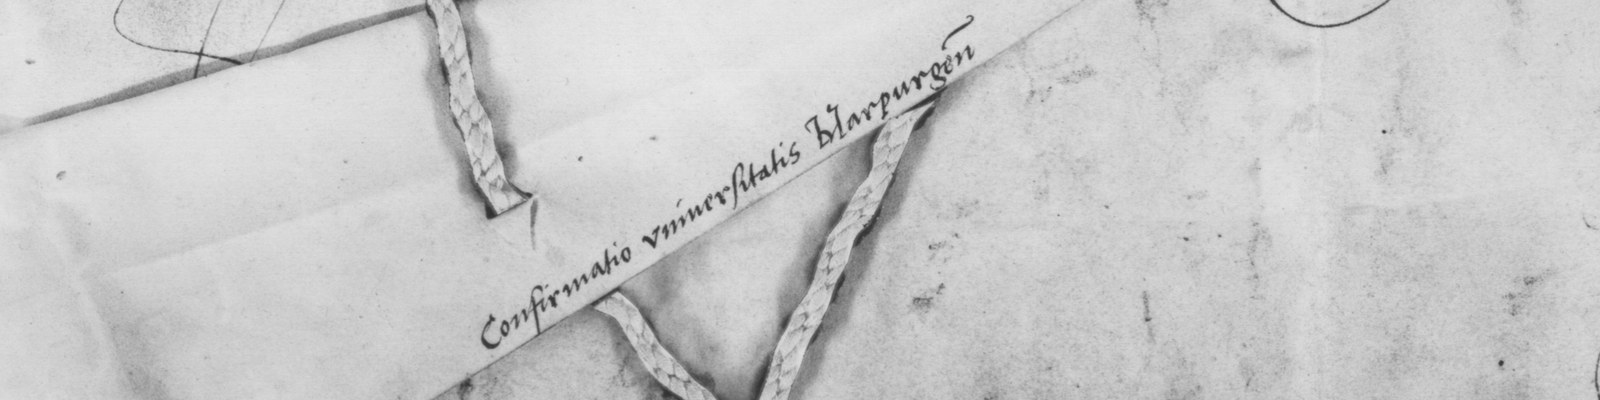 Confirmatio vniuersitatis Marpurgen̄